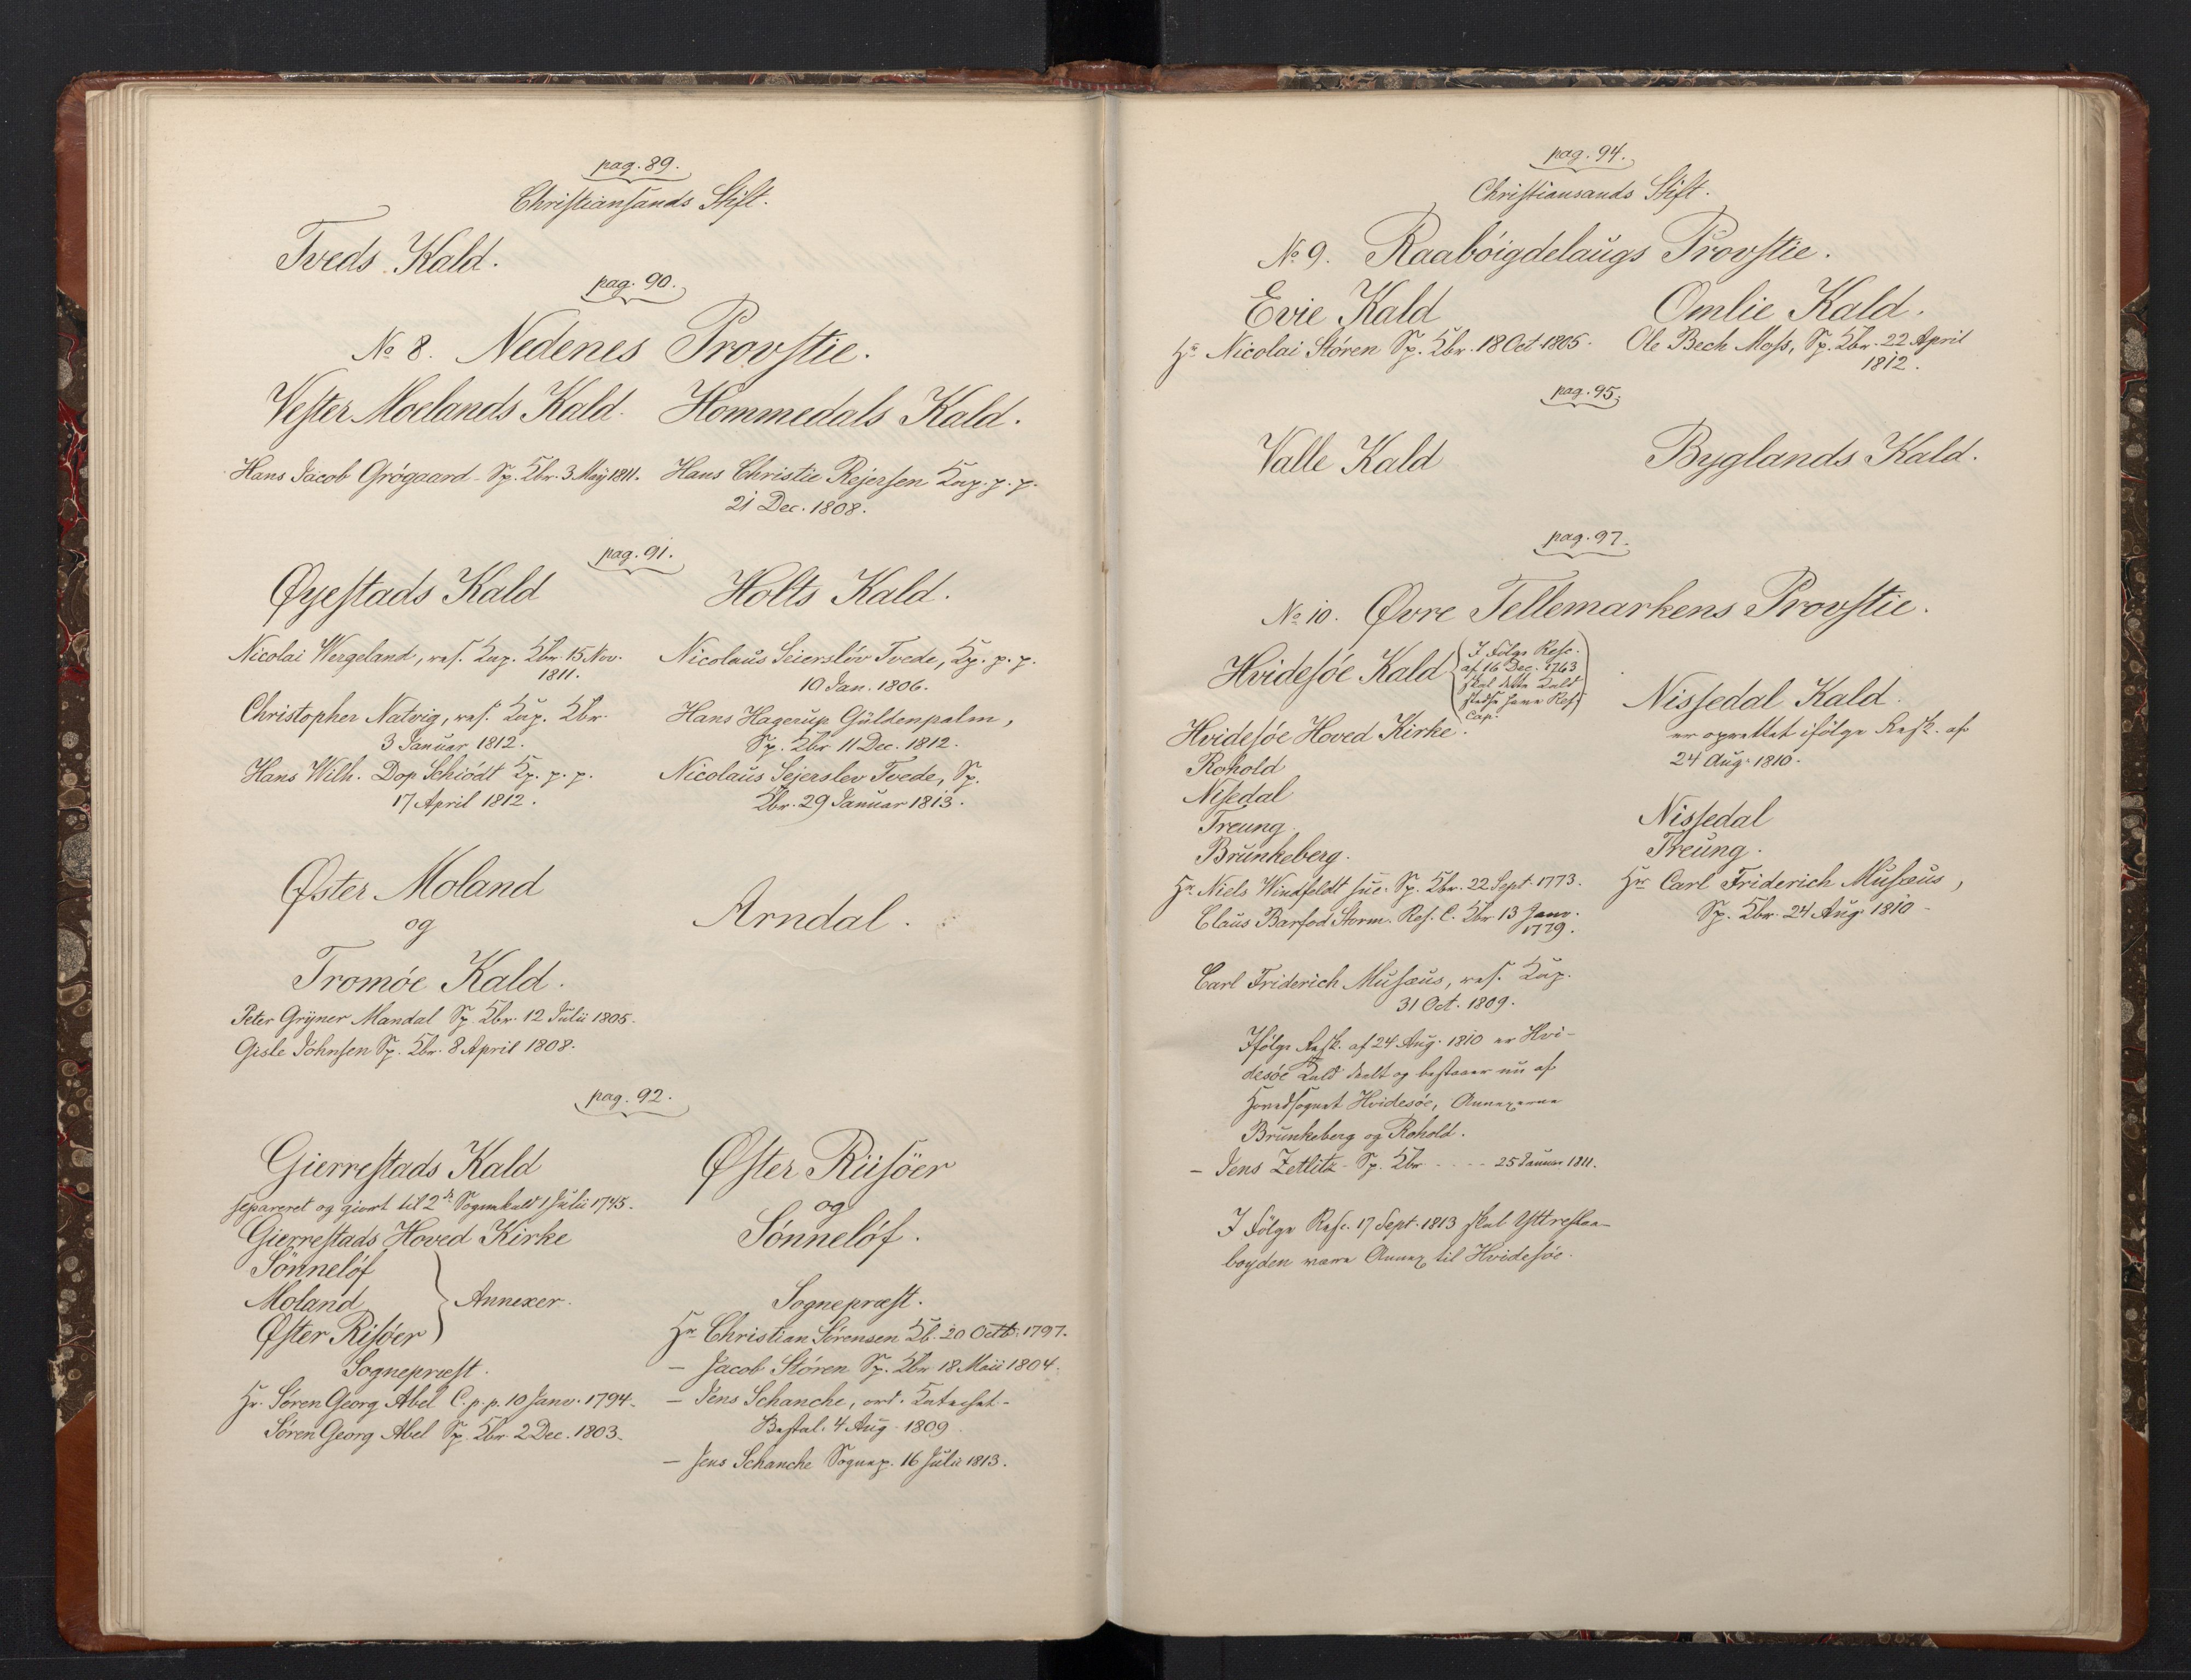 pag. 89.
Christiansands Stift.
Tveds Kald.
pag. 90.
No 8. Nedenes Provstie.
Vester Moelands Kald.
Hans Jacob Grögaard - Sp. Kbr. 3 May 1811.
Hommedals Kald.
Hans Christie Rejersen Kap. p. p.
21 Dec. 1808.
pag. 91.
Øyestads Kald
Nicolai Wergeland, res. Kap. Kbr. 15 Nov.
1811.
Christopher Natvig, res. Kap. Kbr.
3 Januar 1812.
Hans Wilh. Dop Schiödt Kp. p. p.
17 April 1812.
Holts Kald.
Nicolaus Seierslöv Tvede, Kp. p. p.
10 Jan. 1806.
Hans Hagerup Güldenpalm,
Sp. Kbr 11 Dec. 1812.
Nicolaus Sejerslev Tvede, Sp.
Kbr. 29 Januar 1813.
Øster Moland
og
Tromöe Kald.
Peter Grÿner Mandal Sp. Kbr. 12 Julii 1805.
Gisle Johnsen Sp. Kbr. 8 April 1808.
Arndal.
pag. 92.
Gierrestads Kald
separeret og giort til 2de Sognekald 1 Julii 1745.
Gierrestads Hoved Kirke
Sönnelöf
Moland
Øster Risöer
Annexer.
Sognepræst.
Hr. Sören Georg Abel C. p. p. 10 Janv. 1794.
Sören Georg Abel Sp. Kbr. 2 Dec. 1803.
Øster Riisöer
og
Sönnelöf.
Sognepræst.
Hr Christian Sörensen Kb. 20 Octb. 1797.
— Jacob Stören Sp. Kbr 18 Maii 1804.
— Jens Schanche, ord. Katechet -
Bestal. 4 Aug. 1809.
— Jens Schanche Sognep. 16 Julii 1813.
pag. 94.
Christiansands Stift.
No 9. Raabóigdelaugs Provstie.
Evie Kald
Hr Nicolai Stören Sp. Kbr. 18 Oct 1805.
Omlie Kald.
Ole Bech Moss, Sp. Kbr. 22 April
1812.
pag. 95.
Valle Kald
Byglands Kald.
pag. 97.
No 10. Øvre Tellemarkens Provstie.
Hvidesöe Kald
I Følge Resc.
af 16 Dec. 1763
skal dette Kald
stedse have Res.
Cap.
Hvidesöe Hoved Kirke.
Rohold
Nisedal
Treung.
Brunkeberg.
Hr Niels Windfeldt suc. Sp. Kbr. 22 Sept. 1773.
Claus Barfod Storm. Res. C. Kbr 13 Janv.
1779.
Carl Friderich Musæus, res. Kap.
31 Oct. 1809.
Ifölge Resk. af 24 Aug. 1810 er Hvi-
desöe Kald deelt og bestaaer nu af
Hovedsognet Hvidesöe, Annexerne
Brunkeberg og Rohold.
— Jens Zetlitz - Sp. Kbr - - - - 25 Januar 1811.
I Fölge Resc. 17 Sept. 1813 skal
boyden være Annex til Hvidesöe.
Nissedal Kald.
er oprettet ifölge Resk. af
24 Aug. 1810.
Nissedal
Treung.
Hr Carl Friderich Musæus,
Sp. Kbr. 24 Aug. 1810 -